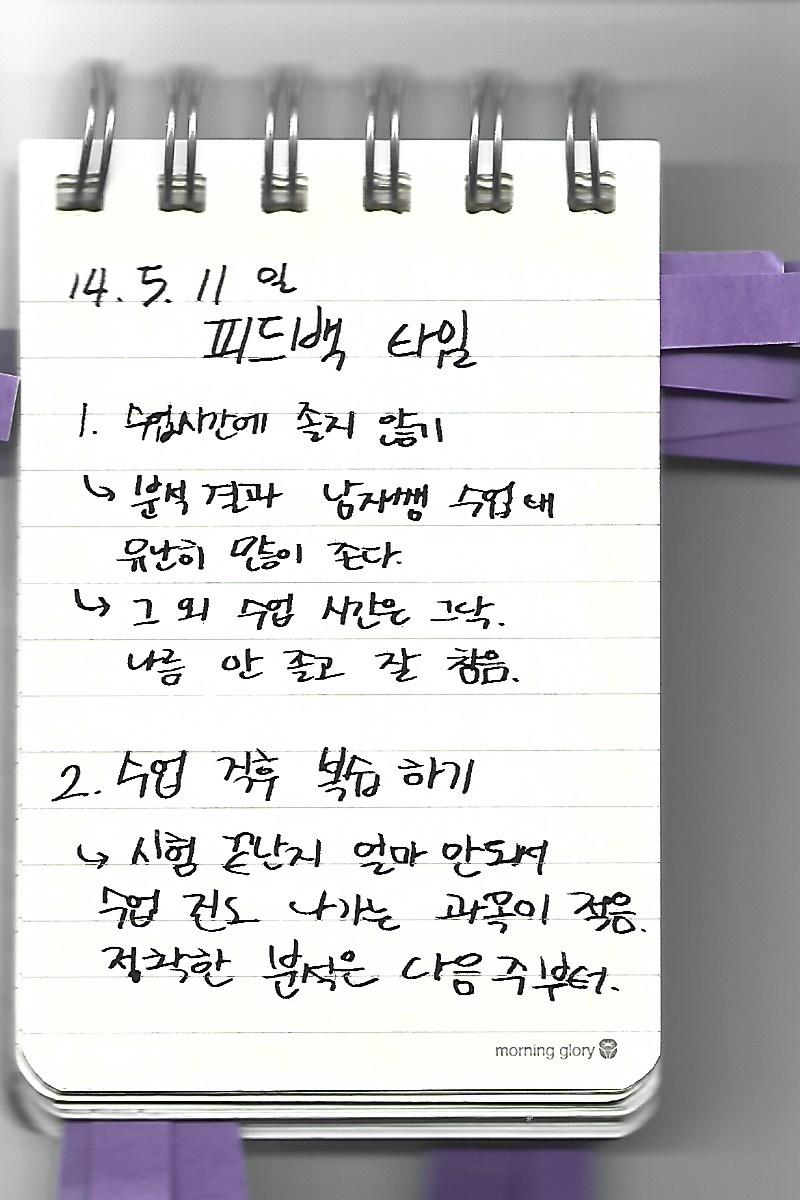 14. 5. 11 일
피드백 타임
1. 수업시간에 졸지 않기
↳ 분석 결과 남자쌤 수업 때
유난히 많이 존다.
↳ 그 외 수업 시간은 그닥.
나름 안 졸고 잘 참음.
2. 수업 직후 복습 하기
↳ 시험 끝난지 얼마 안되서
수업 진도 나가는 과목이 적음.
정확한 분석은 다음 주부터.
morning glory